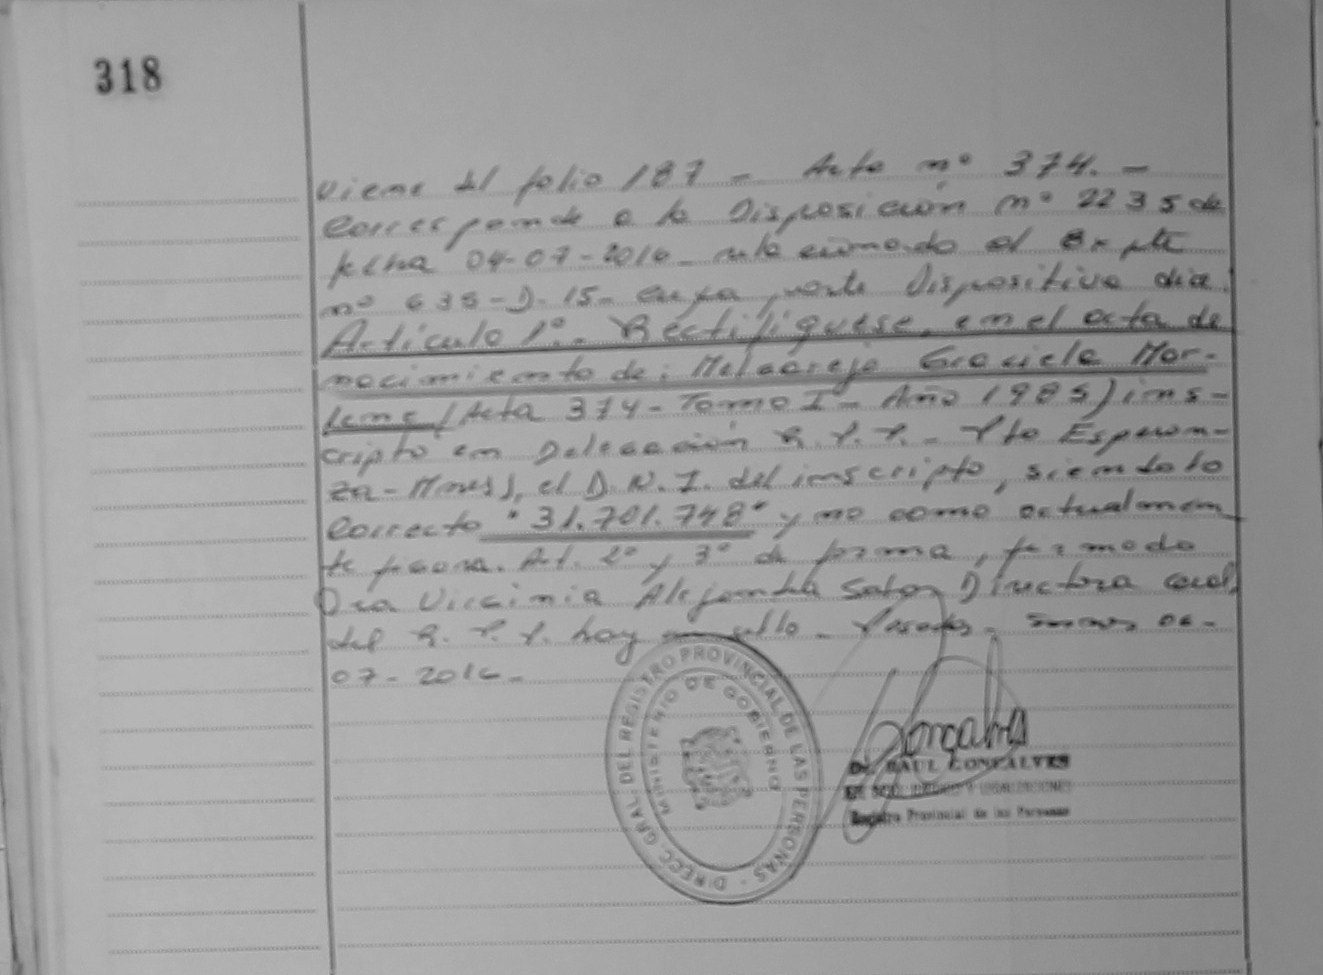 318
Viene del folio 187 - Acta nº 374. -
Corresponde a la Disposición nº 2235 de
fecha 04-07-2016 - relacionado al Expte
nº 635-D-15- cuya parte Dispositiva dice:
Artículo 1º.- Rectifíquese, en el acta de
nacimiento de: Melgarejo Graciela Mar-
lene (Acta 374 - Tomo I - Año 1985) ins-
cripto en Delegación R.P.P. - Pto Esperan-
za - Mnes), el D.N.I. del inscripto, siendo lo
Correcto "31.701.748" y no como actualmen
te figura. Art. 2º y 3º de forma, firmado
Dra Virginia Alejandra Directora Gral
del R.P.P. hay un sello - Posadas - 06-
07-2016-
DIRECC. GRAL. DEL REGISTRO PROVINCIAL DE LAS PERSONAS
MINISTERIO DE GOBIERNO
Gonçalves
Dr. RAUL GONÇALVES
Registro Provincial de las Personas